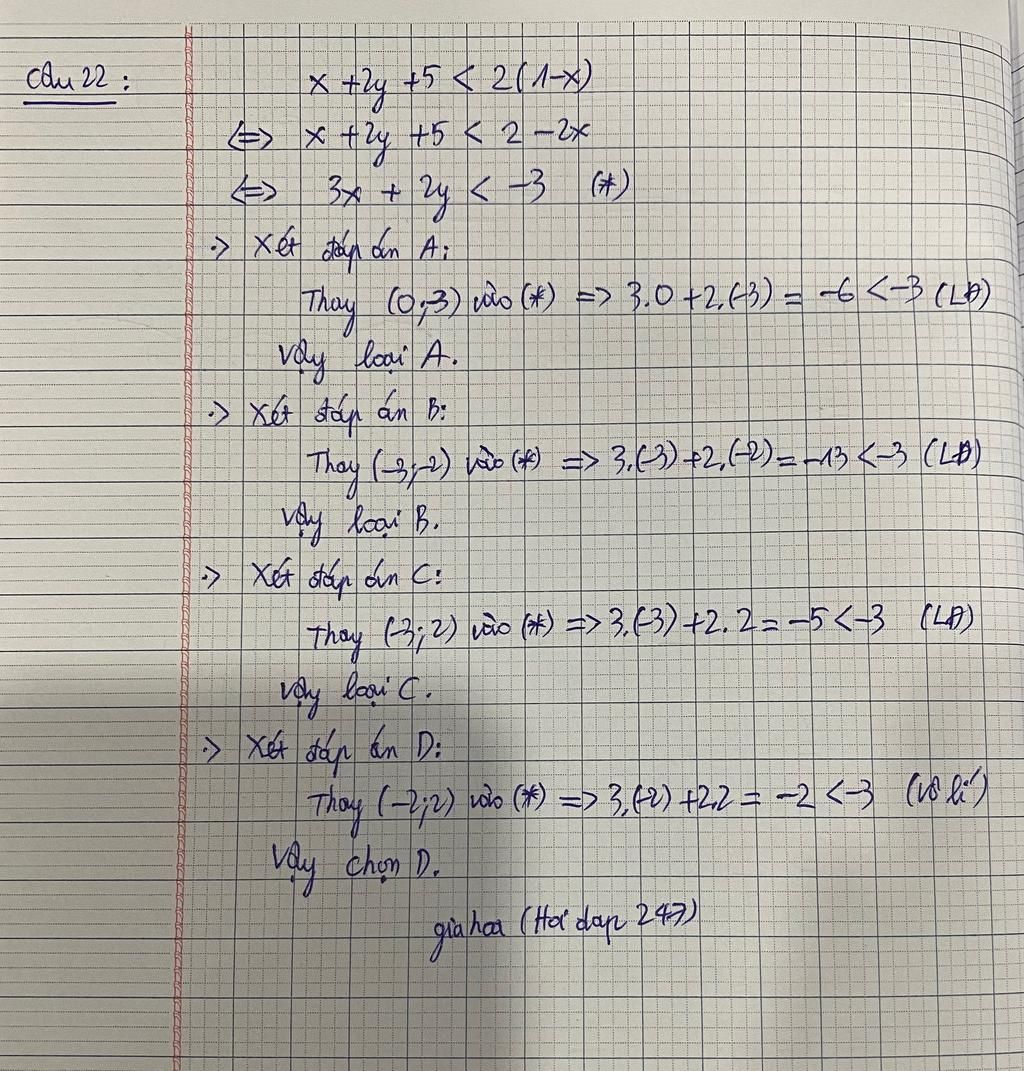 Câu 22: x + 2y + 5 < 2(1-x)
<=> x + 2y + 5 < 2 - 2x
<=> 3x + 2y < -3 (*)
·> Xét đáp án A:
Thay (0;-3) vào (*) => 3.0 + 2.(-3) = -6 < -3 (LĐ)
Vậy loại A.
·> Xét đáp án B:
Thay (-3;-2) vào (*) => 3.(-3) + 2.(-2) = -13 < -3 (LĐ)
Vậy loại B.
·> Xét đáp án C:
Thay (-3;2) vào (*) => 3.(-3) + 2.2 = -5 < -3 (LĐ)
Vậy loại C.
·> Xét đáp án D:
Thay (-2;2) vào (*) => 3.(-2) + 2.2 = -2 < -3 (Vô lí)
Vậy chọn D.
giahoa (Hoi dap 247)